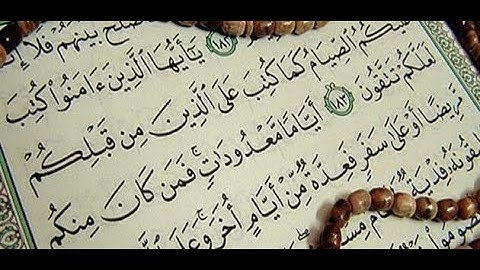 صلح بينهم فلا إ
١٨٢ يَٰٓأَيُّهَا ٱلَّذِينَ ءَامَنُوا۟ كُتِبَ
عَلَيْكُمُ ٱلصِّيَامُ كَمَا كُتِبَ عَلَى ٱلَّذِينَ مِن قَبْلِكُمْ
لَعَلَّكُمْ تَتَّقُونَ ١٨٣ أَيَّامًا مَّعْدُودَٰتٍ ۚ فَمَن كَانَ مِنكُم
مَّرِيضًا أَوْ عَلَىٰ سَفَرٍ فَعِدَّةٌ مِّنْ أَيَّامٍ أُخَرَ ۚ وَعَلَى
فِدْيَةٌ طَعَامُ